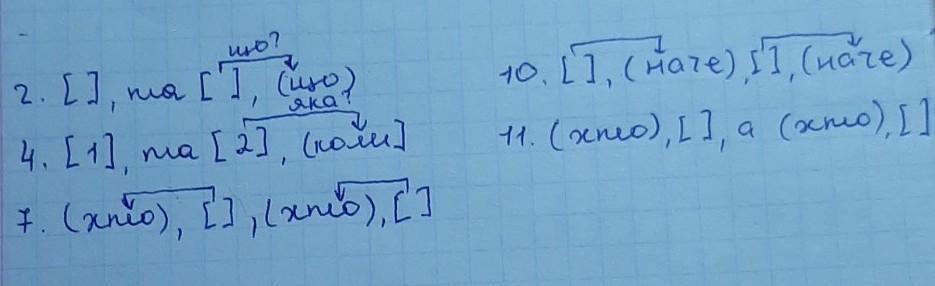 що?
2. [ ], та [ ], (що)
яка?
4. [1], та [2], (коли]
7. (хто), [ ], (хто), [ ]
10. [ ], (наче), [ ], (наче)
11. (хто), [ ], а (хто), [ ]